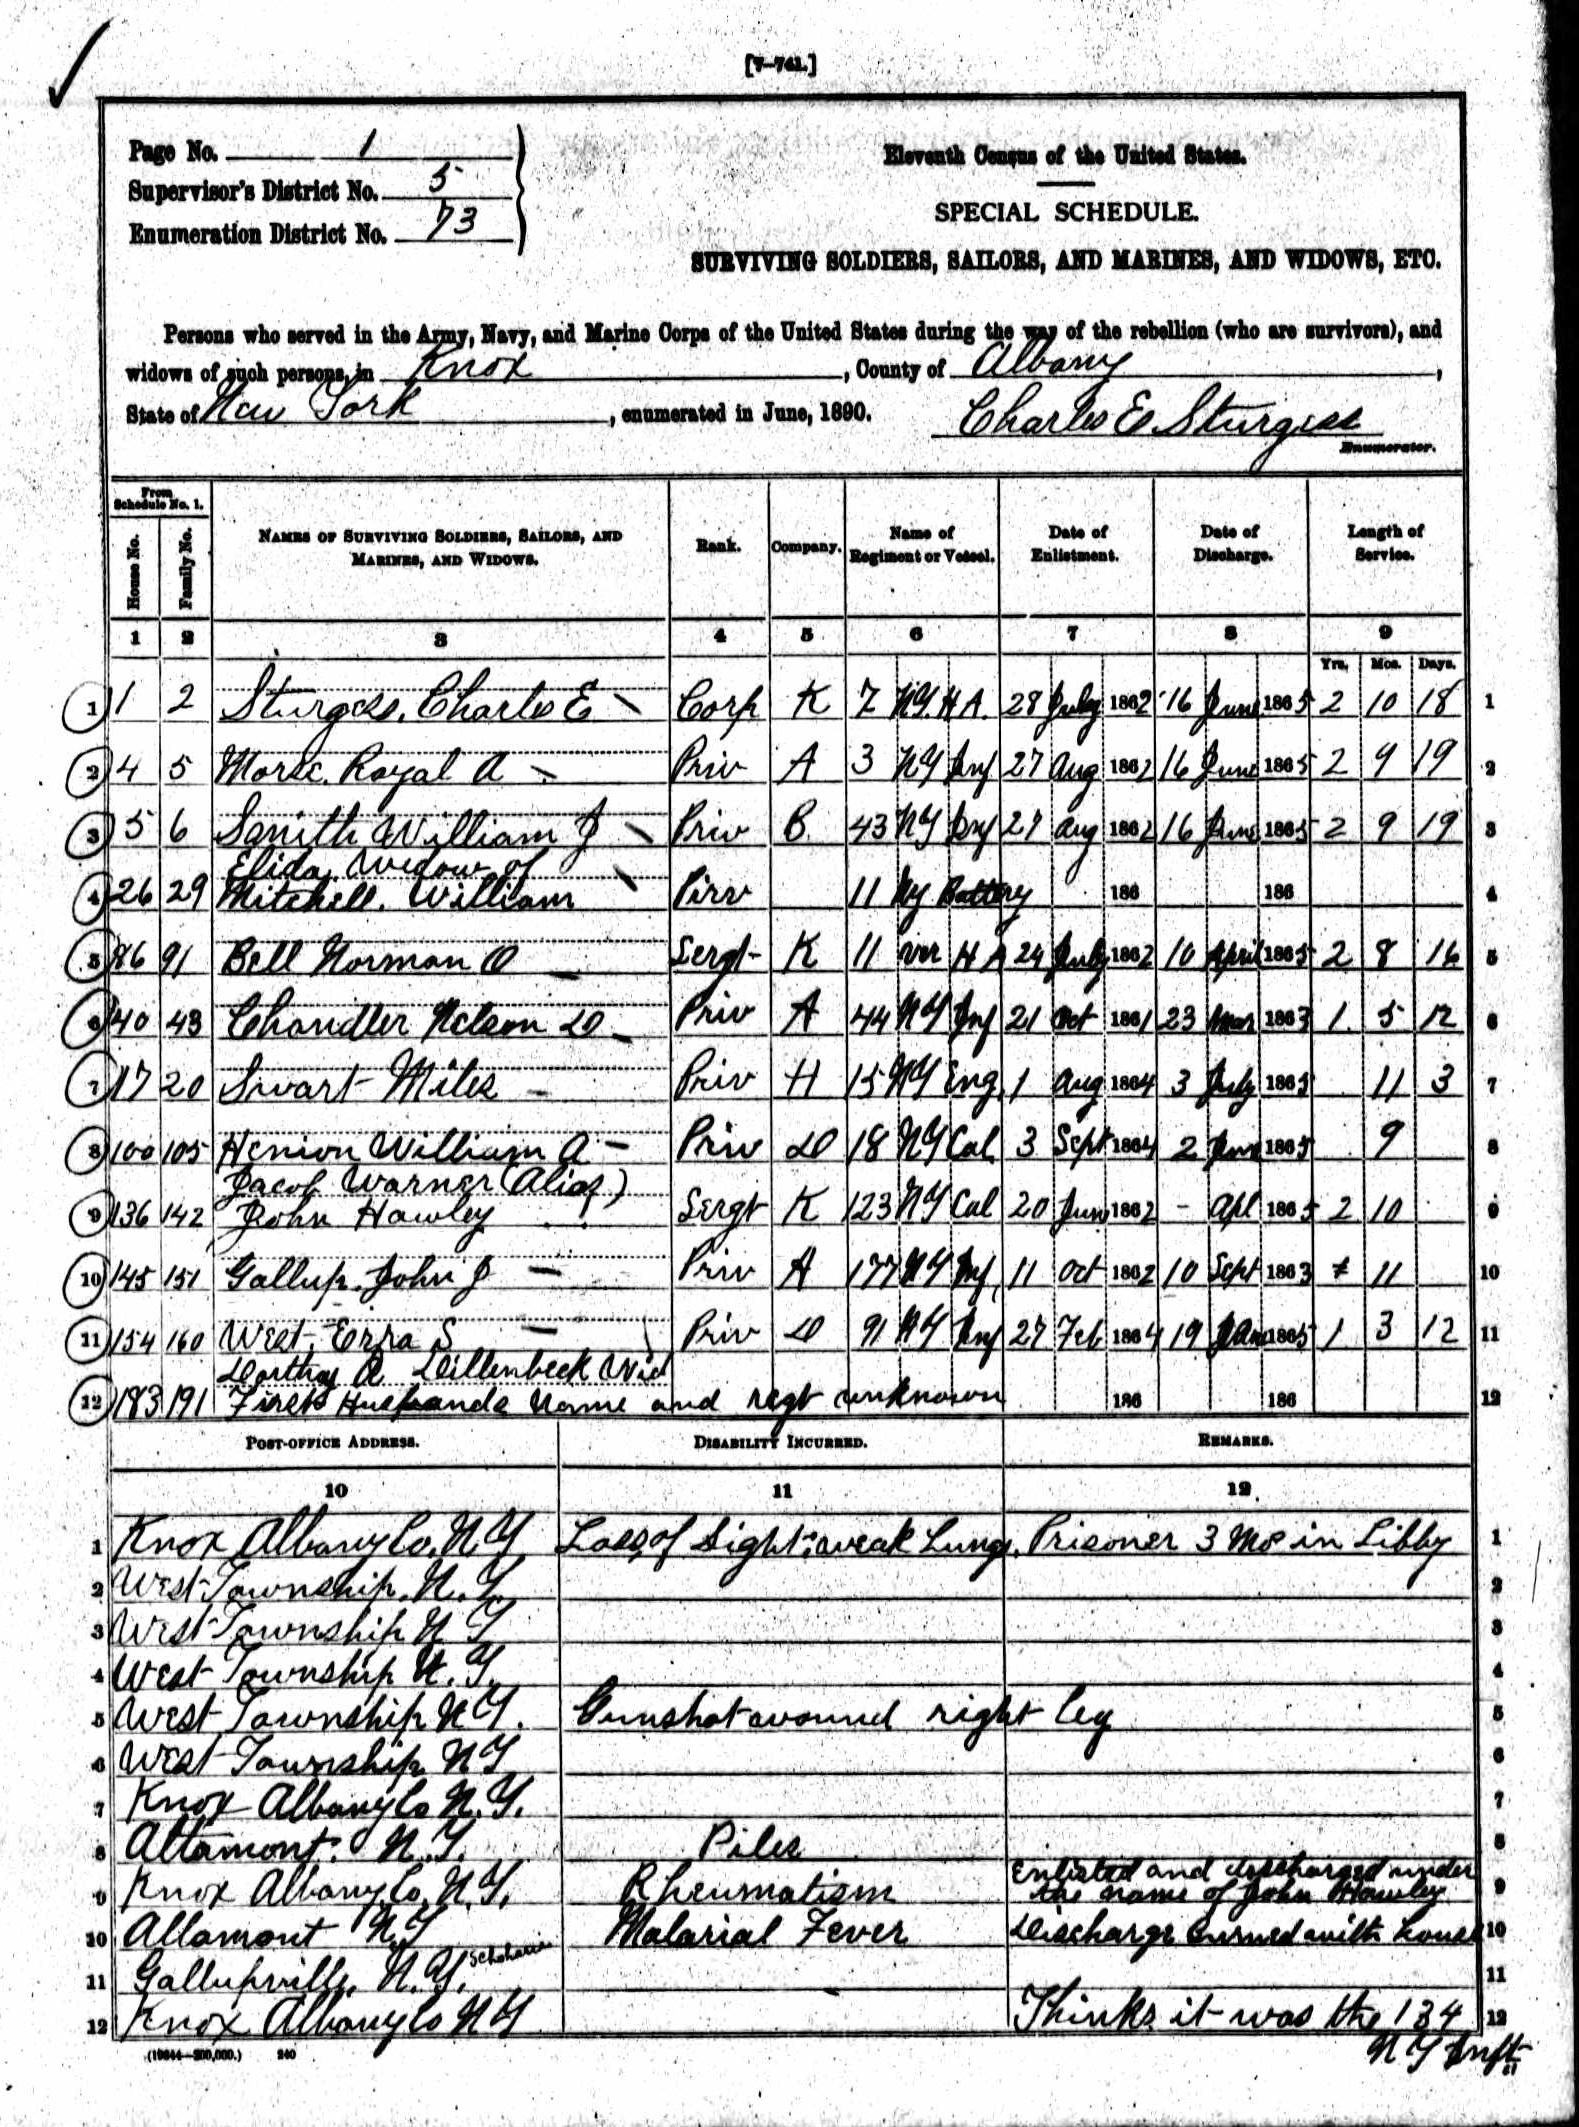 [7–741.]
Page No. 1
Supervisor's District No. 5
Enumeration District No. 73
Eleventh Census of the United States.
SPECIAL SCHEDULE.
SURVIVING SOLDIERS, SAILORS, AND MARINES, AND WIDOWS, ETC.
Persons who served in the Army, Navy, and Marine Corps of the United States during the war of the rebellion (who are survivors), and
widows of such persons, in Knox, County of Albany,
State of New York, enumerated in June, 1890. Charles E Sturgess
Enumerator.
From Schedule No. 1.
House No. Family No. NAMES OF SURVIVING SOLDIERS, SAILORS, AND MARINES, AND WIDOWS. Rank. Company. Name of Regiment or Vessel. Date of Enlistment. Date of Discharge. Length of Service.
1 2 3 4 5 6 7 8 9
Yrs. Mos. Days.
1 1 2 Sturgess, Charles E Corp K 7 NY. H A. 28 July 1862 16 June 1865 2 10 18 1
2 4 5 Royal A Priv A 3 NY Inf 27 Aug 1862 16 June 1865 2 9 19 2
3 5 6 Smith William J Priv B. 43 NY Inf 27 Aug 1862 16 June 1865 2 9 19 3
Elida Widow of
4 26 29 Mitchell. William Priv 11 Ny Battery 186 186 4
5 86 91 Bell Norman O Sergt K 11 ver H A 24 July 1862 10 April 1865 2 8 16 5
6 40 43 Chandler Nelson D Priv A 44 NY Inf 21 Oct 1861 23 Mar 1863 1 5 12 6
7 17 20 Swart Miles Priv H 15 NY Eng. 1 Aug 1864 3 July 1865 11 3 7
8 100 105 Henion William A Priv D 18 NY Cal 3 Sept 1864 2 June 1865 9 8
Jacob Warner (Alias)
9 136 142 John Hawley Sergt K 123 NY Cal 20 Jun 1862 – Apl 1865 2 10 9
10 145 151 Gallup. John J Priv A 177 NY Inf 11 Oct 1862 10 Sept 1863 11 10
11 154 160 West, Ezra S Priv D 91 NY Inf 27 Feb 1864 19 Jun 1865 1 3 12 11
Dorthy A Dillenbeck Wid
12 183 191 First Husbands Name and regt unknown 186 186 12
POST-OFFICE ADDRESS. DISABILITY INCURRED. REMARKS.
10 11 12
1 Knox Albany Co. N.Y Loss of Sight: weak Lungs. Prisoner 3 Mos in Libby 1
2 West Township. N.Y. 2
3 West Township N Y 3
4 West Township N.Y. 4
5 West Township N Y. Gunshot wound right leg 5
6 West Township N Y 6
7 Knox Albany Co N.Y. 7
8 Altamont. N.Y. Piles 8
Enlisted and discharged under
9 Knox Albany Co. N.Y. Rheumatism the name of John Hawley 9
10 Altamont N.Y Malarial Fever Discharge burned with house 10
11 Gallupville, N.Y. Schoharie 11
12 Knox Albany Co N Y Thinks it was the 134 12
N Y Inft
(19644—200,000.) 240